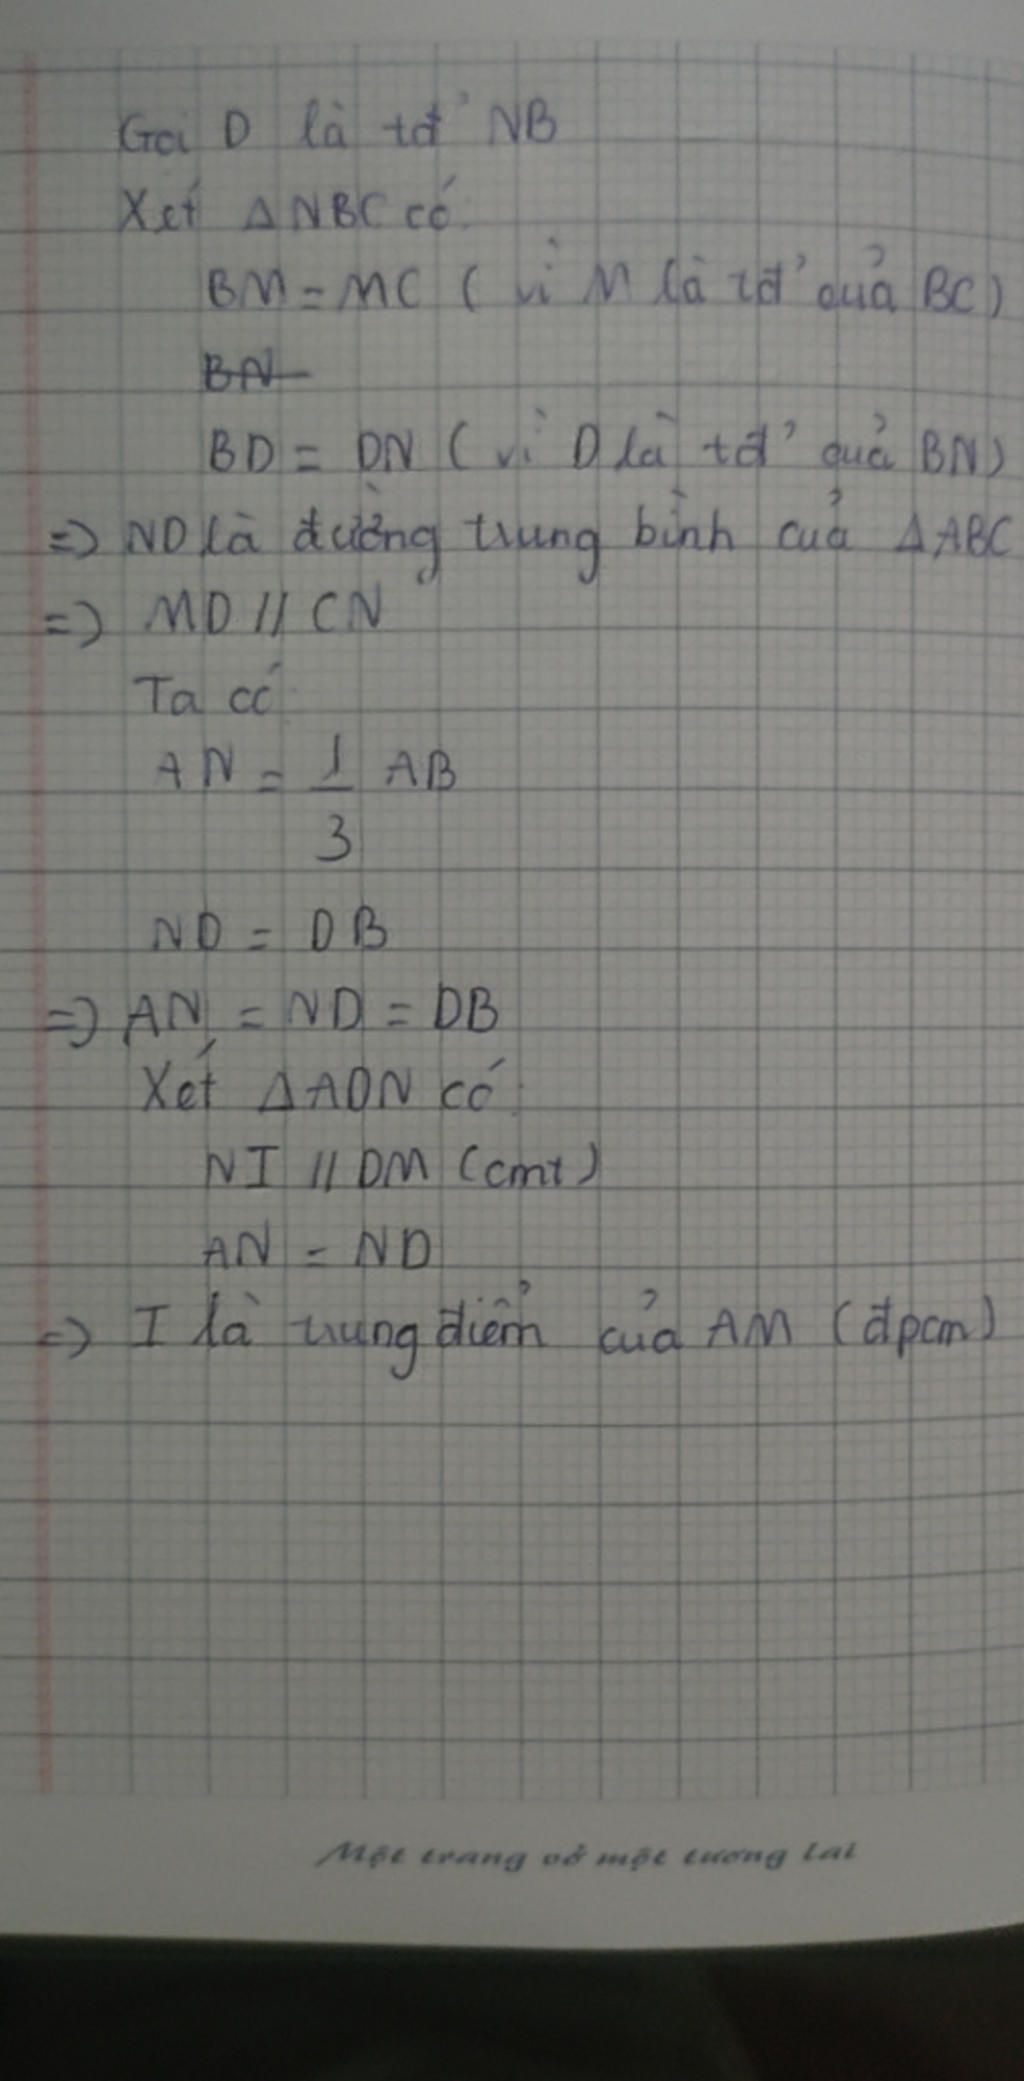 Gọi D là tđ' NB
Xét ΔNBC có:
BM = MC ( vì M là tđ' của BC )
BN
BD = DN ( vì D là tđ' của BN )
=> ND là đường trung bình của ΔABC
=> MD // CN
Ta có
AN = 1/3 AB
ND = DB
=> AN = ND = DB
Xét ΔADN có:
NI // DM (cmt)
AN = ND
=> I là trung điểm của AM (đpcm)
Một trang vở một tương lai